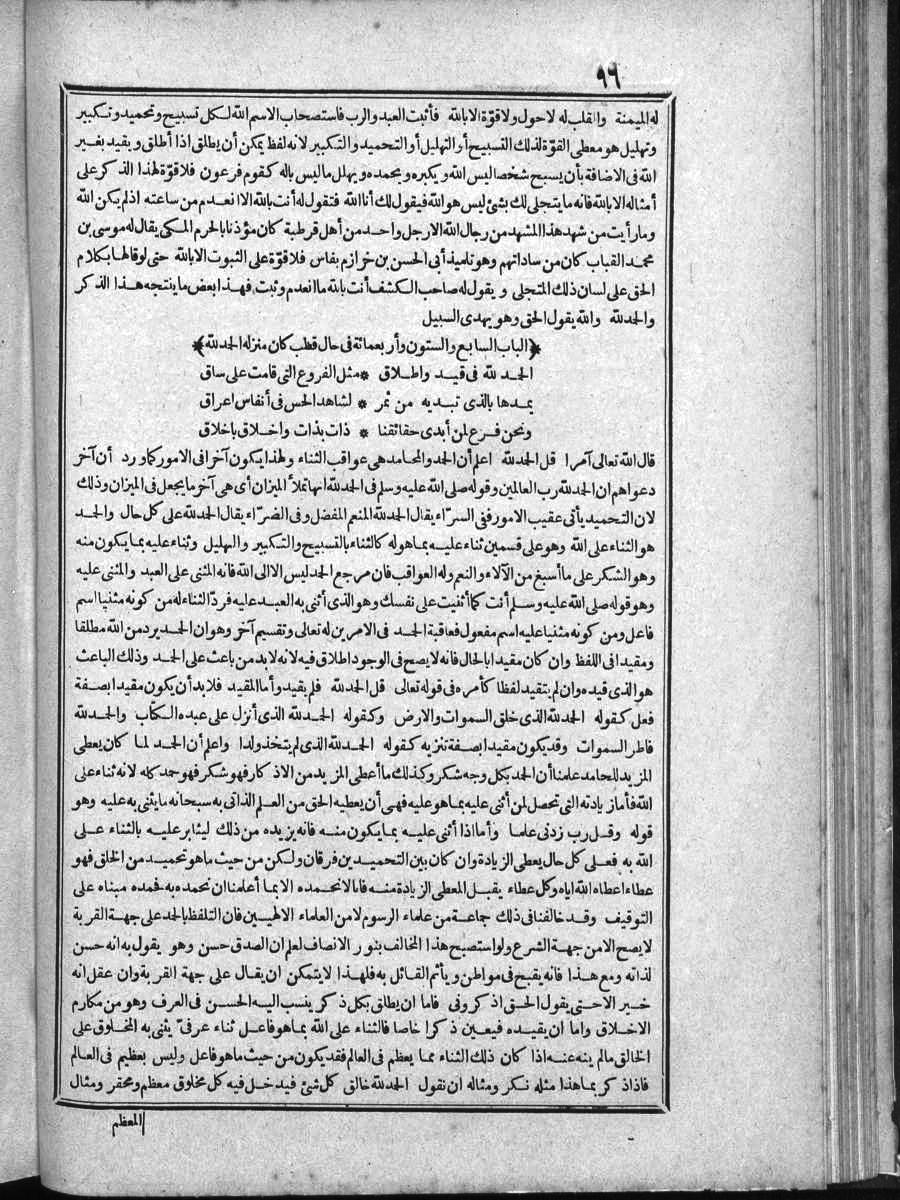 ٩٦
له الميمنة والقلب له لاحول ولا قوة الا بالله فأثبت العبد والرب فاستصحاب الاسم الله لكل تسبيح وتحميد وتكبير
وتهليل هو معطى القوة لذلك التسبيح أو التهليل أو التحميد والتكبير لانه لفظ يمكن أن يطلق اذا أطلق ويقيد بغير
الله فى الاضافة بأن يسبح شخصا ليس الله ويكبره ويحمده ويهلل ما ليس باله كقوم فرعون فلا قوة لهذا الذكر على
أمثاله الا بالله فانه ما يتجلى لك بشئ ليس هو الله فيقول لك أنا الله فتقول له أنت بالله الا انعدم من ساعته اذ لم يكن الله
وما رأيت من شهد هذا المشهد من رجال الله الارجل واحد من أهل قرطبة كان مؤذنا بالحرم المكى يقال له موسى بن
محمد القباب كان من ساداتهم وهو تلميذ أبى الحسن بن خرازم بفاس فلا قوة على الثبوت الا بالله حتى لو قالها بكلام
الحق على لسان ذلك المتجلى ويقول له صاحب الكشف أنت بالله ما انعدم وثبت فهذا بعض ما ينتجه هذا الذكر
والحد لله والله يقول الحق وهو يهدى السبيل
﴿الباب السابع والستون وأربعمائة فى حال قطب كان منزله الحد لله﴾
الحمد لله فى قيد واطلاق * مثل الفروع التى قامت على ساق
يمدها بالذى تبديه من ثمر * لشاهد الحس فى أنفاس اعراق
ونحن فرع لمن أبدى حقائقنا * ذات بذات واخلاق باخلاق
قال الله تعالى آمرا قل الحد لله اعلم أن الحد والمحامد هى عواقب الثناء ولهذا يكون آخرا فى الامور كما ورد أن آخر
دعواهم ان الحد لله رب العالمين وقوله صلى الله عليه وسلم فى الحد لله انها تملأ الميزان أى هى آخر ما يجعل فى الميزان وذلك
لان التحميد يأتى عقيب الامور ففى السرّاء يقال الحد لله المنعم المفضل وفى الضرّاء يقال الحد لله على كل حال والحد
هو الثناء على الله وهو على قسمين ثناء عليه بما هو له كالثناء بالتسبيح والتكبير والتهليل وثناء عليه بما يكون منه
وهو الشكر على ما أسبغ من الآلاء والنعم وله العواقب فان مرجع الحد ليس الا الى الله فانه المثنى على العبد والمثنى عليه
وهو قوله صلى الله عليه وسلم أنت كما أثنيت على نفسك وهو الذى أثنى به العبد عليه فرد الثناء له من كونه مثنيا اسم
فاعل ومن كونه مثنيا عليه اسم مفعول فعاقبة الحد فى الامرين له تعالى وتقسيم آخر وهو ان الحد يرد من الله مطلقا
ومقيدا فى اللفظ وان كان مقيدا بالحال فانه لا يصح فى الوجود اطلاق فيه لانه لابد من باعث على الحد وذلك الباعث
هو الذى قيده وان لم يتقيد لفظا كأمره فى قوله تعالى قل الحد لله فلم يقيد وأما المقيد فلابد أن يكون مقيدا بصفة
فعل كقوله الحد لله الذى خلق السموات والارض وكقوله الحد لله الذى أنزل على عبده الكتاب والحد لله
فاطر السموات وقد يكون مقيدا بصفة تنزيه كقوله الحد لله الذى لم يتخذ ولدا واعلم أن الحد لما كان يعطى
المزيد للحامد علمنا أن الحد بكل وجه شكر وكذلك ما أعطى المزيد من الاذكار فهو شكر فهو حمد كله لانه ثناء على
الله فأما زيادته التى تحصل لمن أثنى عليه بما هو عليه فهى أن يعطيه الحق من العلم الذاتى به سبحانه ما يثنى به عليه وهو
قوله وقل رب زدنى علما وأما اذا أثنى عليه بما يكون منه فانه يزيده من ذلك ليثابر عليه بالثناء على
الله به فعلى كل حال يعطى الزيادة وان كان بين التحميد ين فرقان ولكن من حيث ما هو تحميد من الخلق فهو
عطاء اعطاه الله اياه وكل عطاء يقبل المعطى الزيادة منه فانا لا نحمده الا بما أعلمنا ان نحمده به فحمده مبناه على
التوقيف وقد خالفنا فى ذلك جماعة من علماء الرسوم لا من العلماء الالهيين فان التلفظ بالحد على جهة القربة
لا يصح الا من جهة الشرع ولو استصبح هذا المخالف بنور الانصاف لعلم ان الصدق حسن وهو يقول به انه حسن
لذاته ومع هذا فانه يقبح فى مواطن ويأثم القائل به فلهذا لا يتمكن ان يقال على جهة القربة وان عقل انه
خير الا حتى يقول الحق اذكرونى فاما ان يطلق بكل ذكر ينسب اليه الحسن فى العرف وهو من مكارم
الاخلاق واما ان يقيده فيعين ذكرا خاصا فالثناء على الله بما هو فاعل ثناء عرفىّ يثنى به المخلوق على
الخالق ما لم ينه عنه اذا كان ذلك الثناء مما يعظم فى العالم فقد يكون من حيث ما هو فاعل وليس بعظيم فى العالم
فاذا ذكر بما هذا مثله نكر ومثاله ان نقول الحد لله خالق كل شئ فيدخل فيه كل مخلوق معظم ومحقر ومثال
المعظم